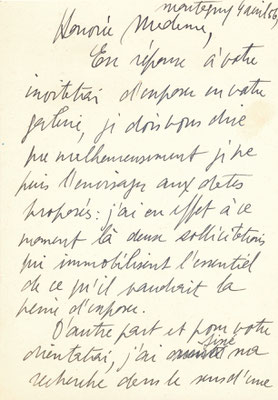 Montegny 4 avril 69
Honorée Madame,
En réponse à votre
invitation d'exposer en votre
galerie, je dois vous dire
que malheureusement je ne
puis l'envisager aux dates
proposées : j'ai en effet à ce
moment là deux sollicitations
qui immobilisent l'essentiel
de ce qu'il vaudrait la
peine d'exposer.
D'autre part et pour votre
fixé
orientation, j'ai ma
recherche dans le sens d'une